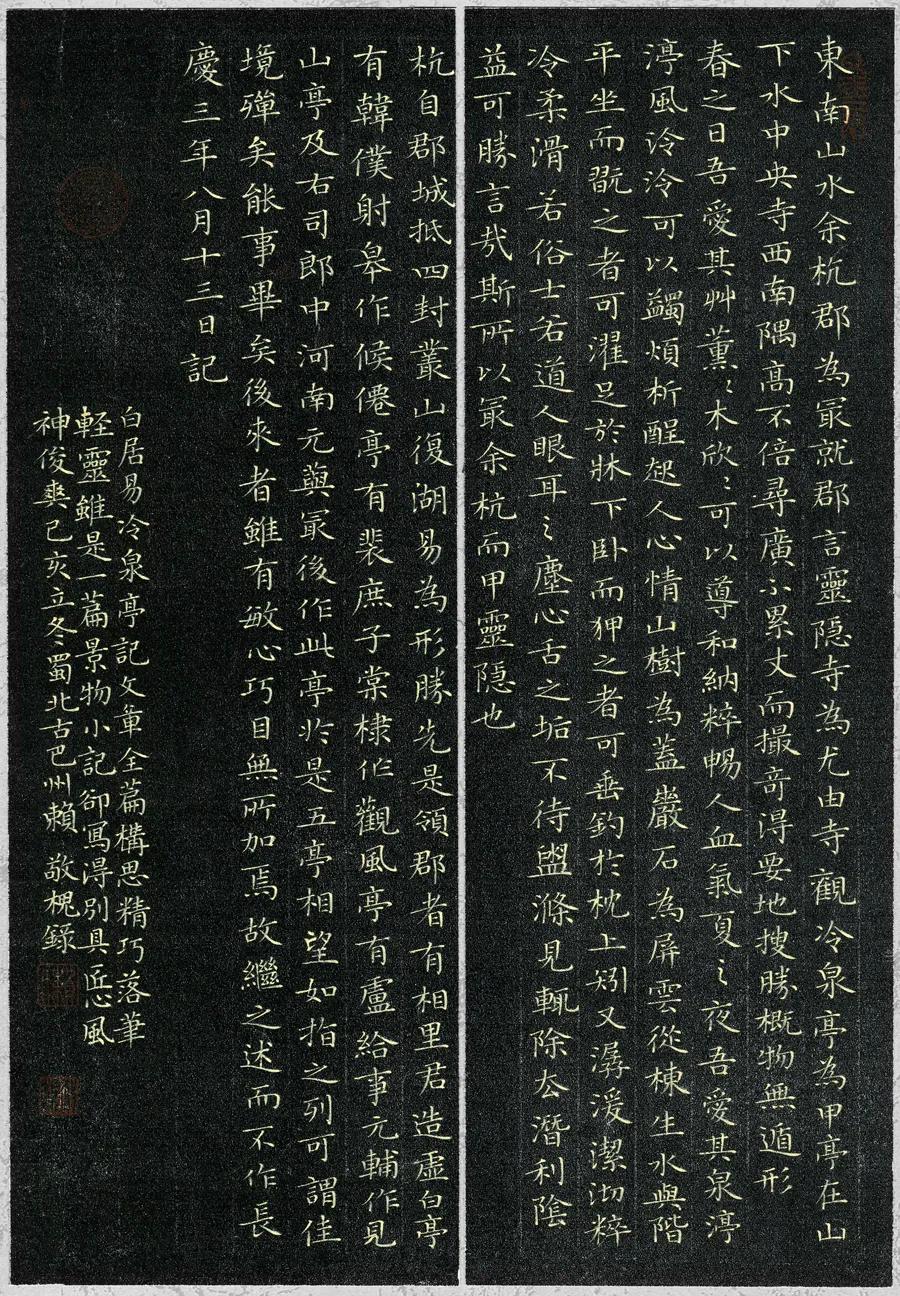 東南山水余杭郡為冣就郡言靈隱寺為尤由寺觀冷泉亭為甲亭在山
下水中央寺西南隅高不倍尋廣不累丈而撮竒淂要地搜勝概物無遁形
春之日吾愛其艸薰〻木欣〻可以導和納粹暢人血氣夏之夜吾愛其泉渟
渟風泠泠可以蠲煩析酲起人心情山樹為蓋巖石為屏雲從棟生水與階
平坐而翫之者可濯足於牀下卧而狎之者可垂釣於枕上矧又潺湲潔沏粹
冷柔滑若俗士若道人眼耳之塵心舌之垢不待盥滌見輒除去潛利陰
益可勝言哉斯所以冣余杭而甲靈隱也
杭自郡城抵四封叢山復湖易為形勝先是領郡者有相里君造虛白亭
有韓僕射皋作候僊亭有裴庶子棠棣作觀風亭有盧給事元輔作見
山亭及右司郎中河南元藇冣後作此亭於是五亭相望如指之列可謂佳
境殫矣能事畢矣後來者雖有敏心巧目無所加焉故繼之述而不作長
慶三年八月十三日記
白居易冷泉亭記文章全篇構思精巧落筆
輕靈雖是一篇景物小記卻寫淂別具匠心風
神俊爽己亥立冬蜀北古巴州賴敬槐錄